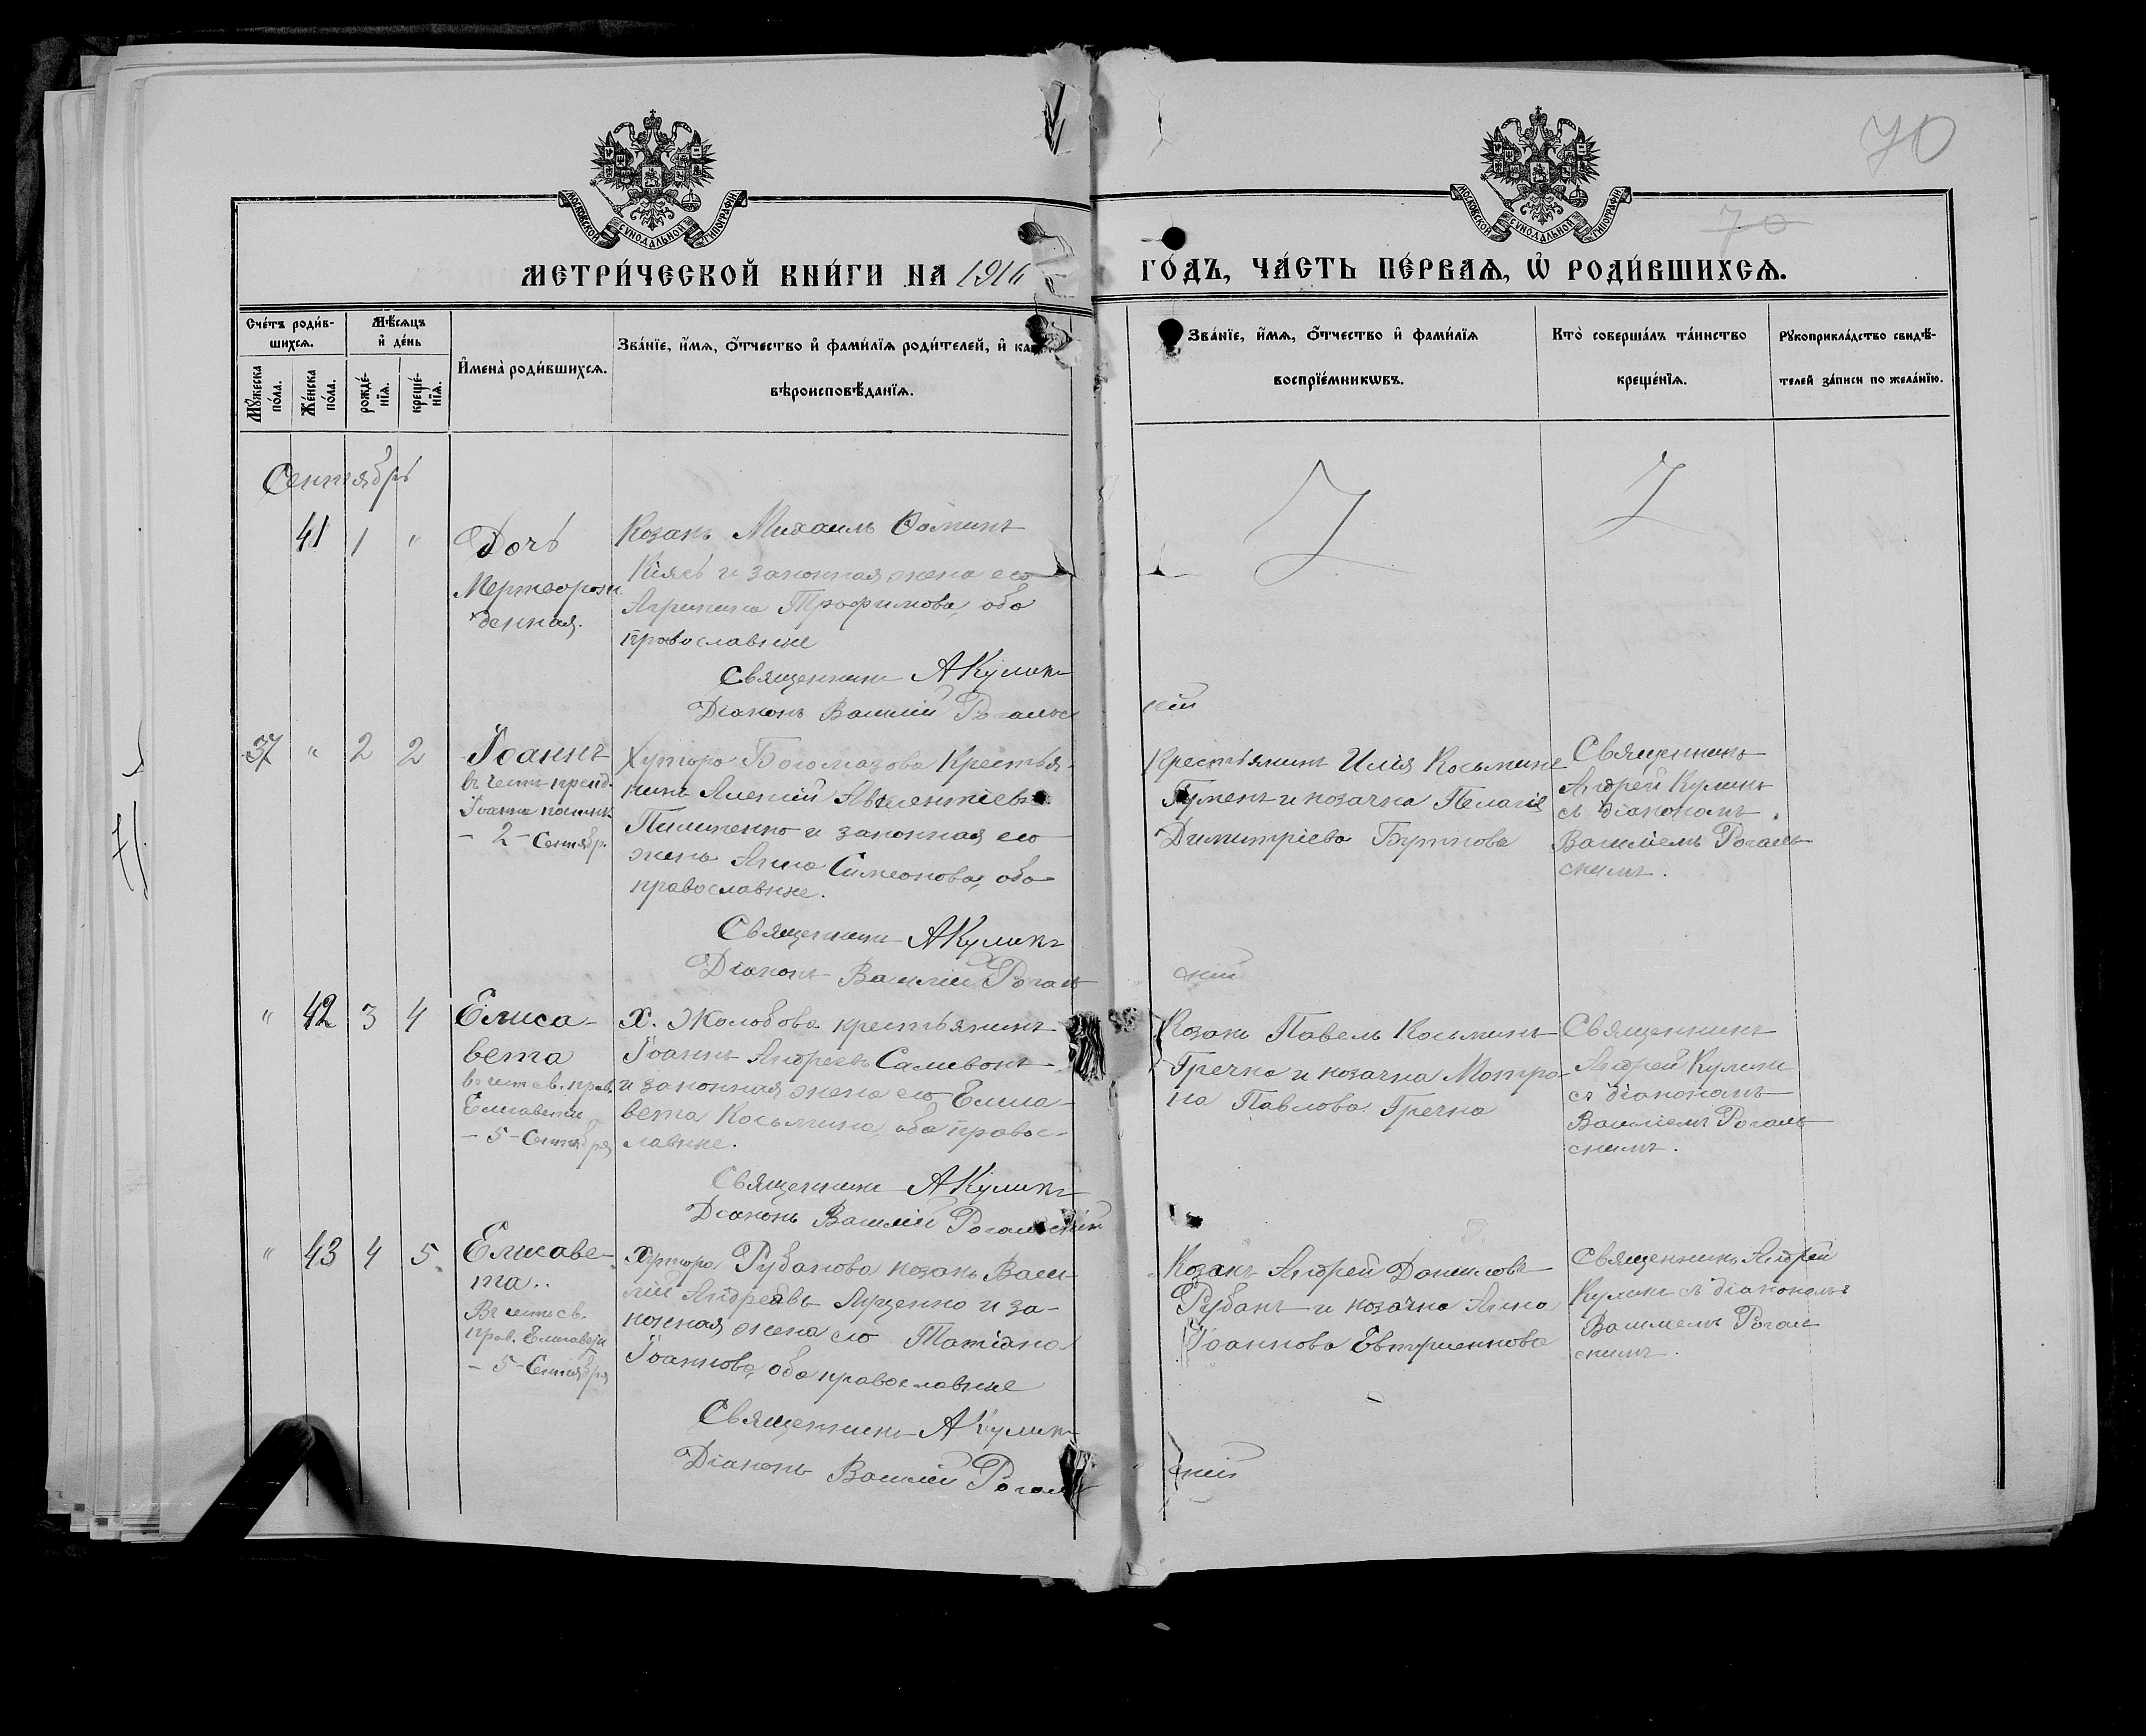 70
70
МОСКОВСКОЙ СѴНОДАЛЬНОЙ ТИПОГРАФІИ
МОСКОВСКОЙ СѴНОДАЛЬНОЙ ТИПОГРАФІИ
МЕТРИ́ЧЕСКОЙ КНИ́ГИ НА 1916 ГО́ДЪ, ЧА́СТЬ ПЕ́РВАѦ, Ѡ҆ РОДИ́ВШИХСѦ.
Сче́тъ роди́в-
шихсѧ.
Мꙋ́жеска по́ла.
Же́нска по́ла.
Мѣ́сѧцъ
и҆ де́нь
рожде́-
нїѧ.
креще́-
нїѧ.
И҆мена̀ роди́вшихсѧ.
Зва́нїе, и҆́мѧ, ѻ҆́тчество и҆ фами́лїѧ роди́телей, и҆
вѣроисповѣ́данїѧ.
Зва́нїе, и҆́мѧ, ѻ҆́тчество и҆ фами́лїѧ
воспрїе́мникѡвъ.
Кто̀ соверша́лъ та́инство
креще́нїѧ.
Рꙋкоприкла́дство свидѣ́-
телей за́писи по жела́нїю.
Сентябрь
41 1 "
Дочь
Мертворож
денная.
Козакъ Михаилъ Ѳоминъ
и законная жена его
Агрипина Трофимова, оба
православные
Священникъ АКуликъ
Діаконъ Василій Рогальс
кій
37 " 2 2
Іоаннъ
въ честь препод.
Іоанна постник
- 2 - Сентябр.
Хутора Богомазова Крестья-
нинъ Алексій Авксентіевъ
Пилипенко и законная его
жена Анна Симеонова, оба
православные.
Священникъ АКуликъ
Діаконъ Василій Рогаль
скій
Крестьянинъ Илія Косьминъ
и козачка Пелагіе
Димитріева Буткова
Священникъ
Андрей Куликъ
съ діакономъ
Василіемъ Рогаль-
скимъ.
" 42 3 4
Елиса-
вета
въ чест св. прав.
Елисаветы
- 5 - Сентября
Х. Жолобова крестьянинъ
Іоаннъ Андреевъ Саливонъ
и законная жена его Елиса-
вета Косьмина, оба правос-
лавные.
Священникъ АКуликъ
Діаконъ Василій Рогальскій
Козакъ Павелъ Косьминъ
Гречка и козачка Матро-
на Павлова Гречка
Священникъ
Андрей Кулик
съ діакономъ
Василіемъ Рогаль
скимъ.
" 43 4 5
Елисаве-
та..
Въ честь св.
прав. Елисаветы
- 5 - Сентября
Хутора Рубанова козакъ Васи-
лій Андреевъ Луценко и за-
конная жена его Татіана
Іоаннова, оба православные
Священникъ АКуликъ
Діаконъ Василій Рогаль
скій
Козакъ Андрей Даниловъ
Рубанъ и козачка Анна
Іоаннова
Священникъ Андрей
Куликъ съ діакономъ
Василіемъ Рогаль
скимъ.